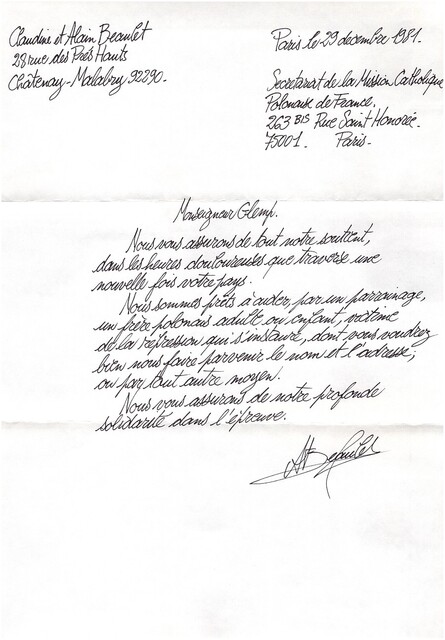 Claudine et Alain Beaulet
28 rue des Prés Hauts
Châtenay-Malabry 92290.
Paris le 29 décembre 1981.
Secrétariat de la Mission Catholique
Polonaise de France.
263 BIS Rue Saint Honorée.
75001. Paris.
Monseigneur Glemp.
Nous vous assurons de tout notre soutient,
dans les heures douloureuses que traverse une
nouvelle fois votre pays.
Nous sommes prêts à aider, par un parrainage,
un frère polonais adulte ou enfant, victime
de la répression qui s'instaure, dont vous voudrez
bien nous faire parvenir le nom et l'adresse;
ou par tout autre moyen.
Nous vous assurons de notre profonde
solidarité dans l'épreuve.